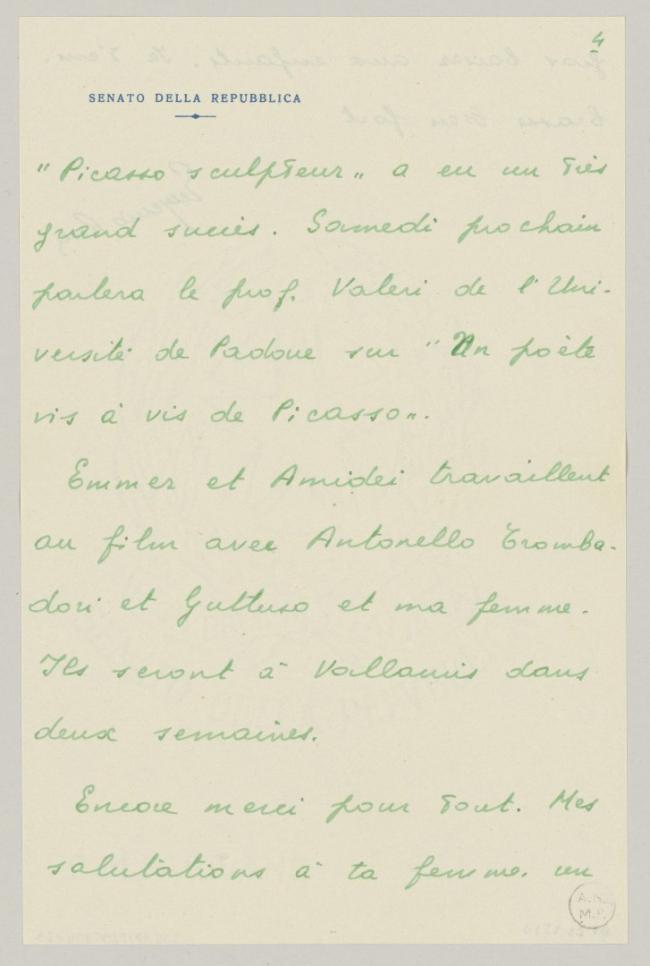 4
SENATO DELLA REPUBBLICA
"Picasso sculpteur" a eu un très
grand succès. Samedi prochain
parlera le prof. Valeri de l'Uni-
versité de Padoue sur "Un poète
vis à vis de Picasso".
Emmer et Amidei travaillent
au film avec Antonello Tromba-
dori et Guttuso et ma femme.
Ils seront à Vallauris dans
deux semaines.
Encore merci pour tout. Mes
salutations à ta femme. un